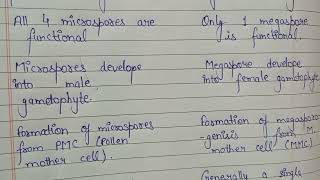 All 4 microspores are
functional
Microspores develope
into male
gametophyte.
Formation of microspores
from PMC (Pollen
mother cell).
Only 1 megaspore
is functional.
Megaspore develope
into female gametophyte
Formation of megaspo
-genisis from M.
mother cell (MMC)
Generally a single